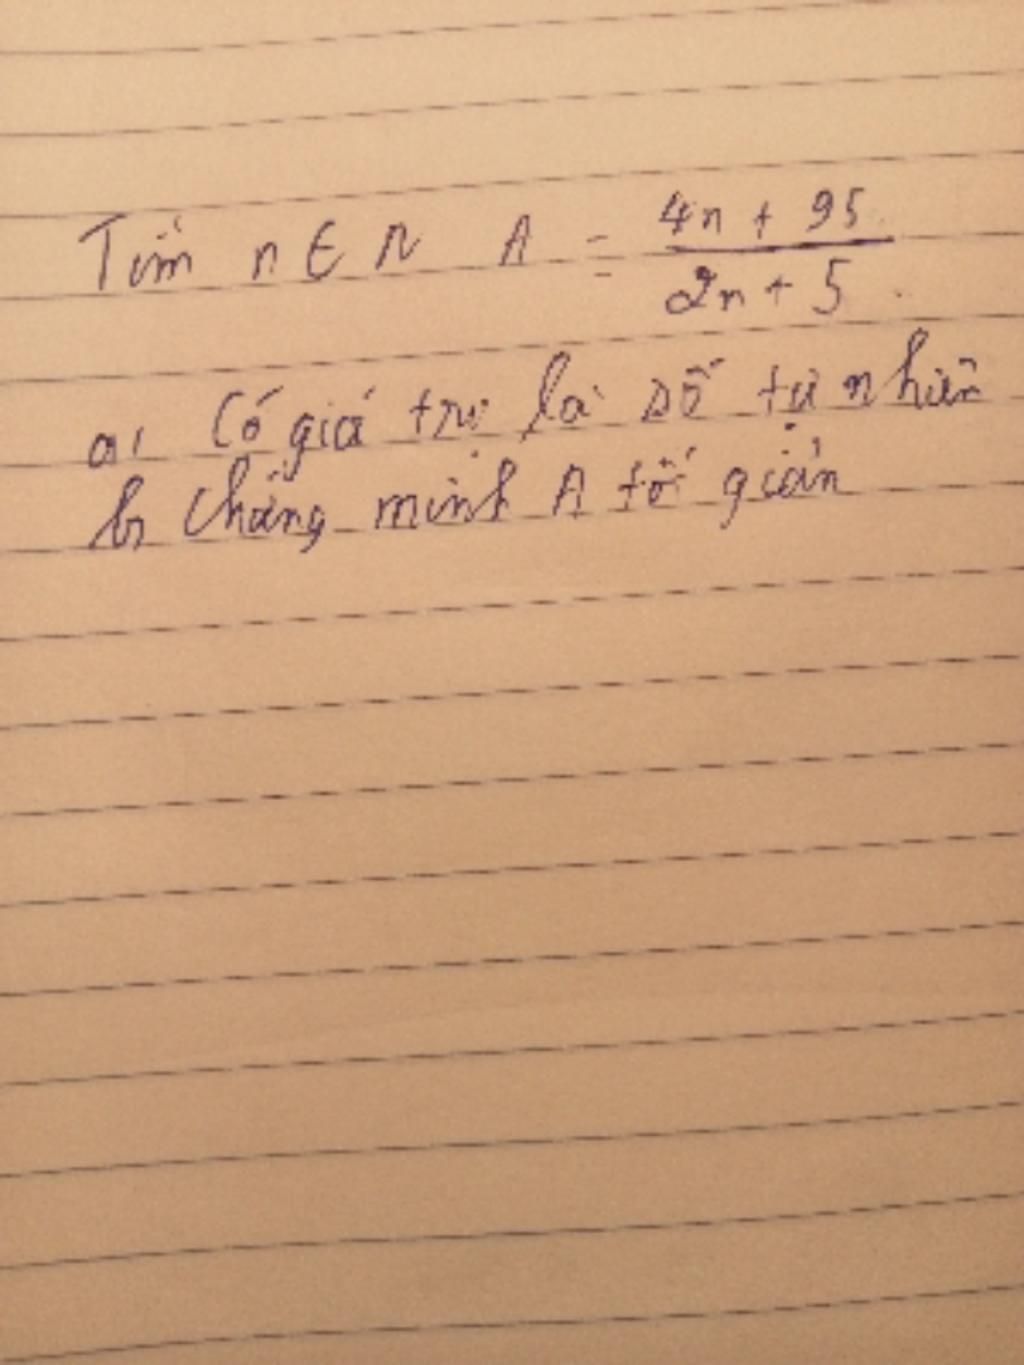 Tìm n ∈ N A = (4n + 95)/(2n + 5)
a, Có giá trị là số tự nhiên
b, Chứng minh A tối giản